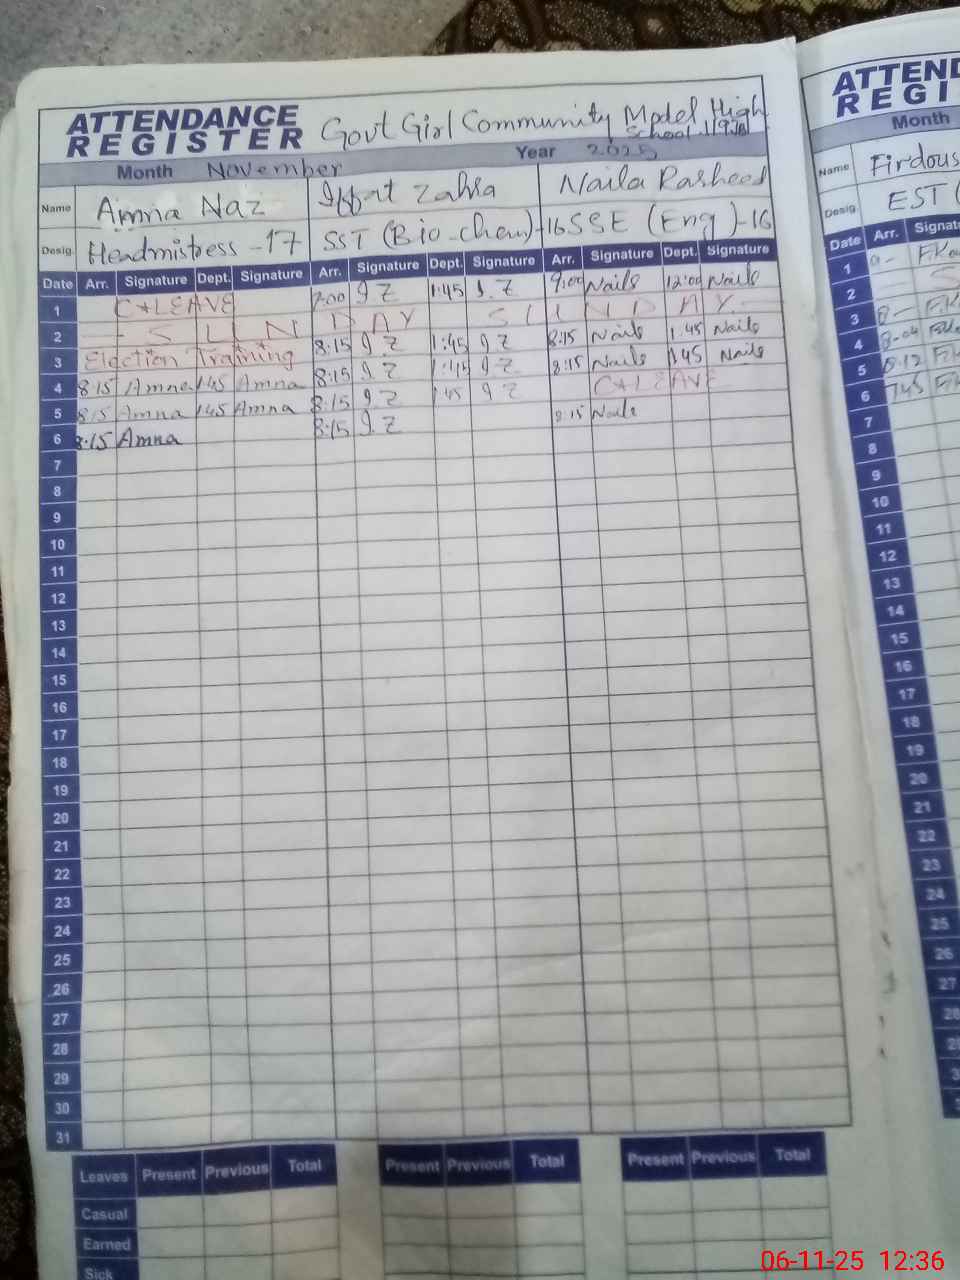 ATTENDANCE REGISTER Govt Girl Community Model High School
Month November Year 2025
Name Amna Naz Iffat Zahra Naila Rasheed
Desig. Headmistress - 17 SST (Bio-Chem)-16 SSE (Eng)-16
Date Arr. Signature Dept. Signature Arr. Signature Dept. Signature Arr. Signature Dept. Signature
1 C*LEAVE 7:00 I.Z 1:45 I.Z 9:00 Naila 12:00 Naila
2 SUNDAY SUNDAY
3 Election Training 8:15 I.Z 1:45 I.Z 8:15 Naila 1:45 Naila
4 8:15 Amna 1:45 Amna 8:15 I.Z 1:45 I.Z 8:15 Naila 1:45 Naila
5 8:15 Amna 1:45 Amna 8:15 I.Z 1:45 I.Z C*LEAVE
6 8:15 Amna 8:15 I.Z 8:15 Naila
7
8
9
10
11
12
13
14
15
16
17
18
19
20
21
22
23
24
25
26
27
28
29
30
31
Leaves Present Previous Total Present Previous Total Present Previous Total
Casual
Earned
Sick
ATTEND
REGI
Month
Name Firdous
Desig. EST (
Date Arr. Signatu
1
2 S
3
4
5 8:12
6 7:45
7
8
9
10
11
12
13
14
15
16
17
18
19
20
21
22
23
24
25
26
27
28
06-11-25 12:36